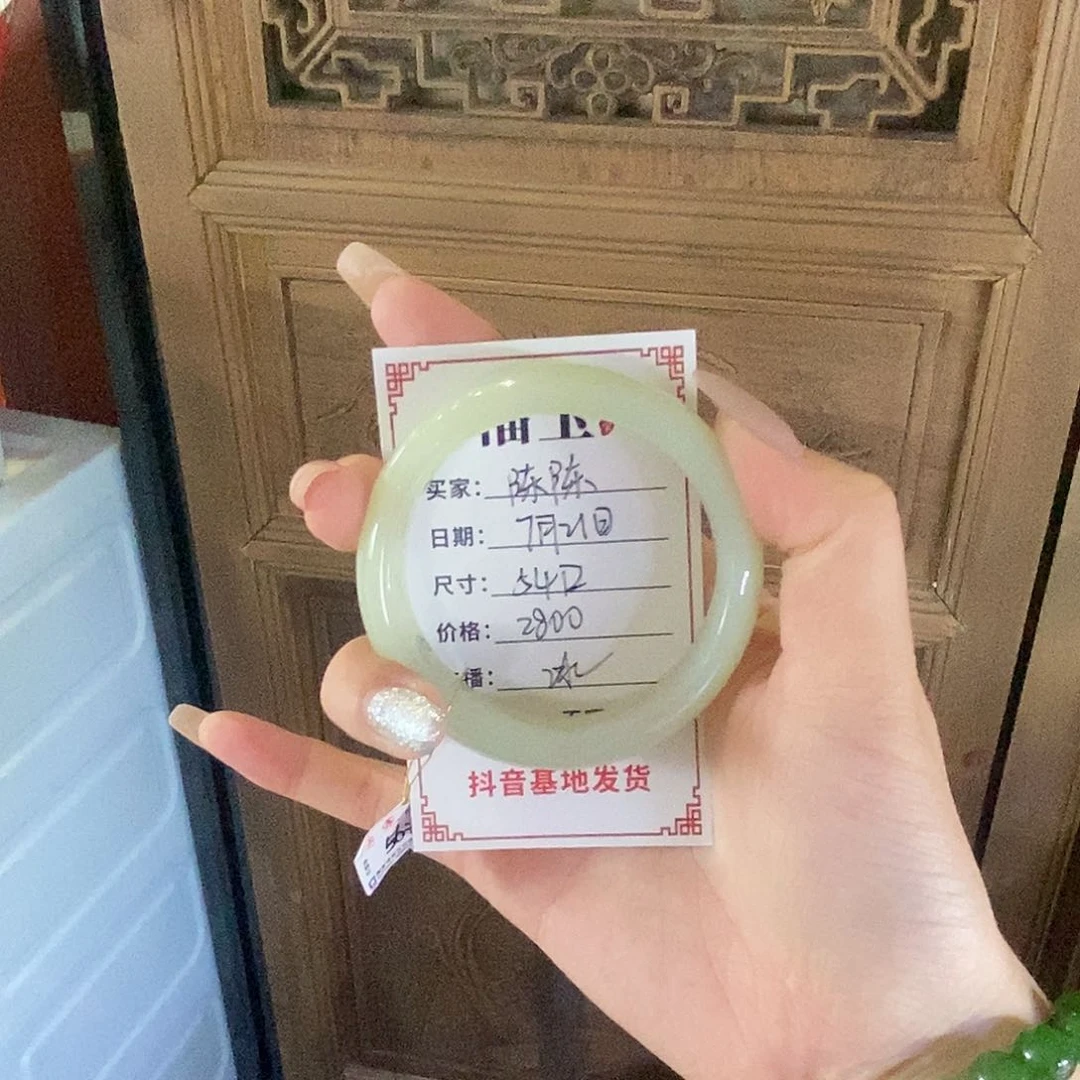 买家: 陈陈
日期: 7月21日
尺寸: 54口
价格: 2800
播: 冰
抖音基地发货
56